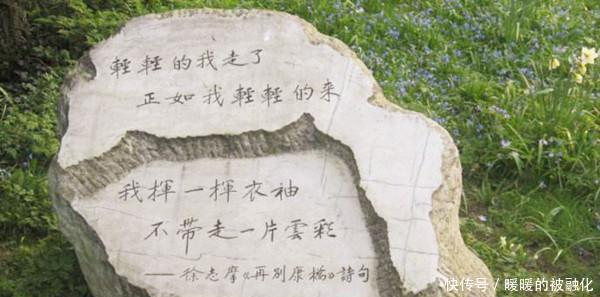 輕輕的我走了
正如我輕輕的来
我揮一揮衣袖
不帶走一片雲彩
——徐志摩《再别康橋》詩句
快传号 / 暖暖的被融化